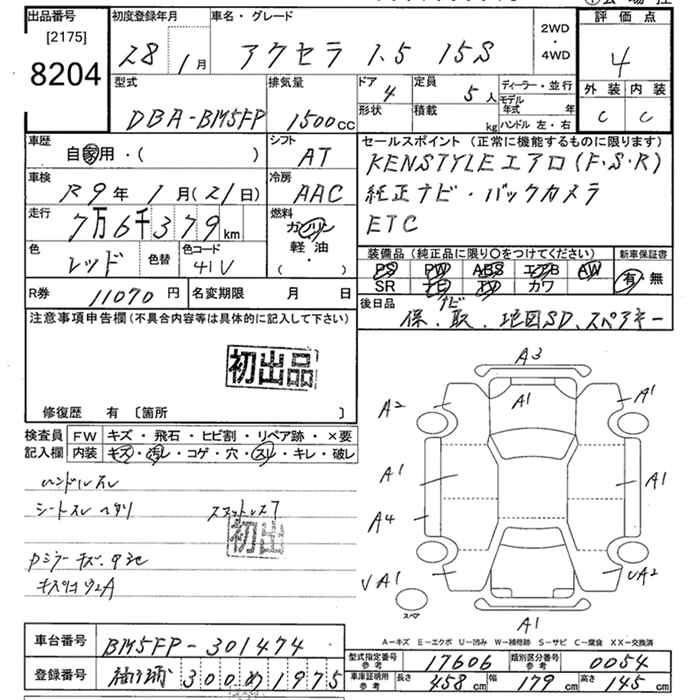 出品番号 [2175] 8204
初度登録年月 28 1月
車名・グレード アクセラ 1.5 15S
2WD ・ 4WD
評価点 4
外装 C 内装 C
型式 DBA-BM5FP
排気量 1500cc
ドア 4 定員 5人
形状 積載 kg
ディーラー・並行
モデル年式 年
ハンドル 左・右
車歴 自家用・( )
シフト AT
車検 R9年 1月(21日)
冷房 AAC
走行 7万6千379km
燃料 ガソリン 軽・油 ( )
色 レッド 色替 色コード 41V
セールスポイント(正常に機能するものに限ります)
KENSTYLEエアロ(F,S,R)
純正ナビ・バックカメラ
ETC
装備品(純正品に限り〇をつけてください) 新車保証書
PS PW ABS エアB AW 有・無
SR ナビ TV カワ
R券 11070円 名変期限 月 日
後日品 保、取、ナビ地図SD、スペアキー
注意事項申告欄(不具合内容等は具体的に記入して下さい)
初出品
修復歴 有 〔箇所 〕
検査員記入欄
FW キズ・飛石・ヒビ割・リペア跡・×要
内装 キズ・汚レ・コゲ・穴・スレ・キレ・破レ
ハンドルスレ
シートスレ ヘタリ
初出
A3
A1
A2
A1
A1
A1
A4
VA1
UA2
A1
スペア
A−キズ E−エクボ U−凹み W−補修跡 S−サビ C−腐食 XX−交換済
車台番号 BM5FP-301474
登録番号 300 め 1975
型式指定番号 参考 17606 類別区分番号 参考 0054
車庫証明用 参考 長さ 458cm 幅 179cm 高さ 145cm